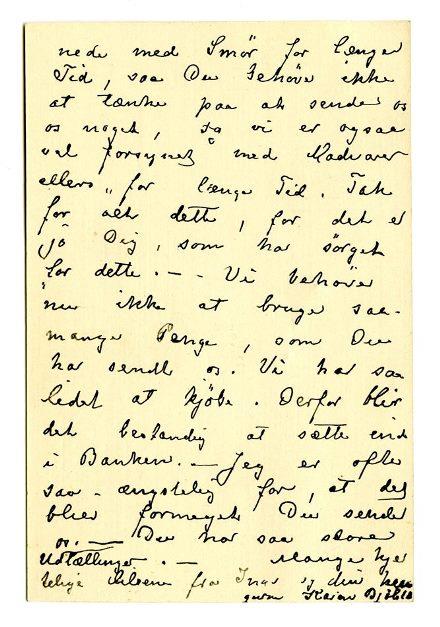 nede med Smör for længer
Tid, saa Du behöver ikke
at tænke paa at sende os
os noget, da vi er ogsaa
vel forsynet med Madvarer
ellers for længe Tid. Tak
for alt dette, for det er
jo Dig, som har sörget
for dette. — - Vi behöver
nu ikke at bruge saa-
mange Penge, som Du
har sendt os. Vi har saa
lidet at kjöbe. Derfor blir
det bestandig at sætte ind
i Banken. — Jeg er ofte
saa - ængstelig for, at det
blier formeget Du sender
os. — Du har saa store
Udtællinger. — Mange kjer
telige hilsene fra Inar og din hen
givne Karen